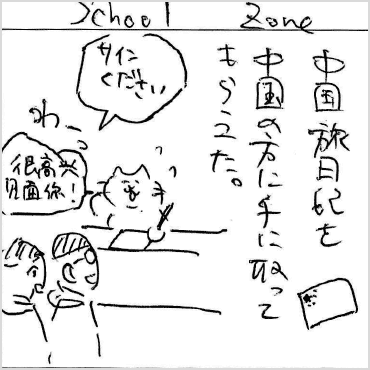 School Zone
中国旅日記を
中国の方に手に取って
もらえた。
サイン
ください
わーっ
很高兴
见面你！